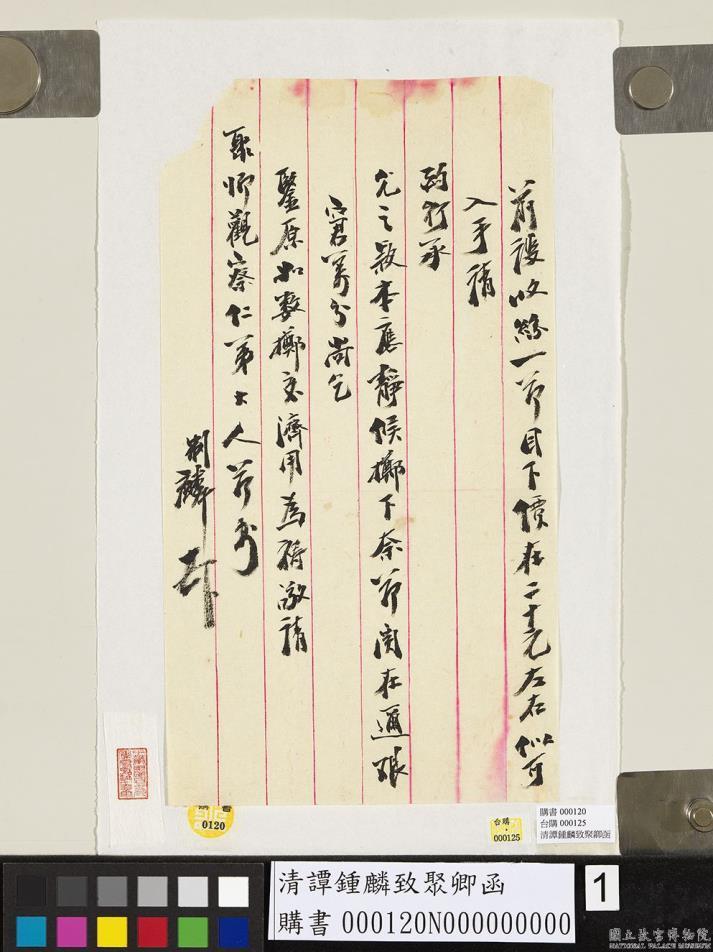 前護收繳一節目下價在二十元左右似可
入手請
酌行承
允之款本應靜候擲下奈節關在邇張
窘萬分尚乞
鑒原如數擲交濟用為禱敬請
聚卿觀察仁弟大人節安
制麟
購書
0120
台購
000125
購書 000120
台購 000125
清譚鍾麟致聚卿函
清譚鍾麟致聚卿函
購書 000120N000000000
1
國立故宮博物院
NATIONAL PALACE MUSEUM